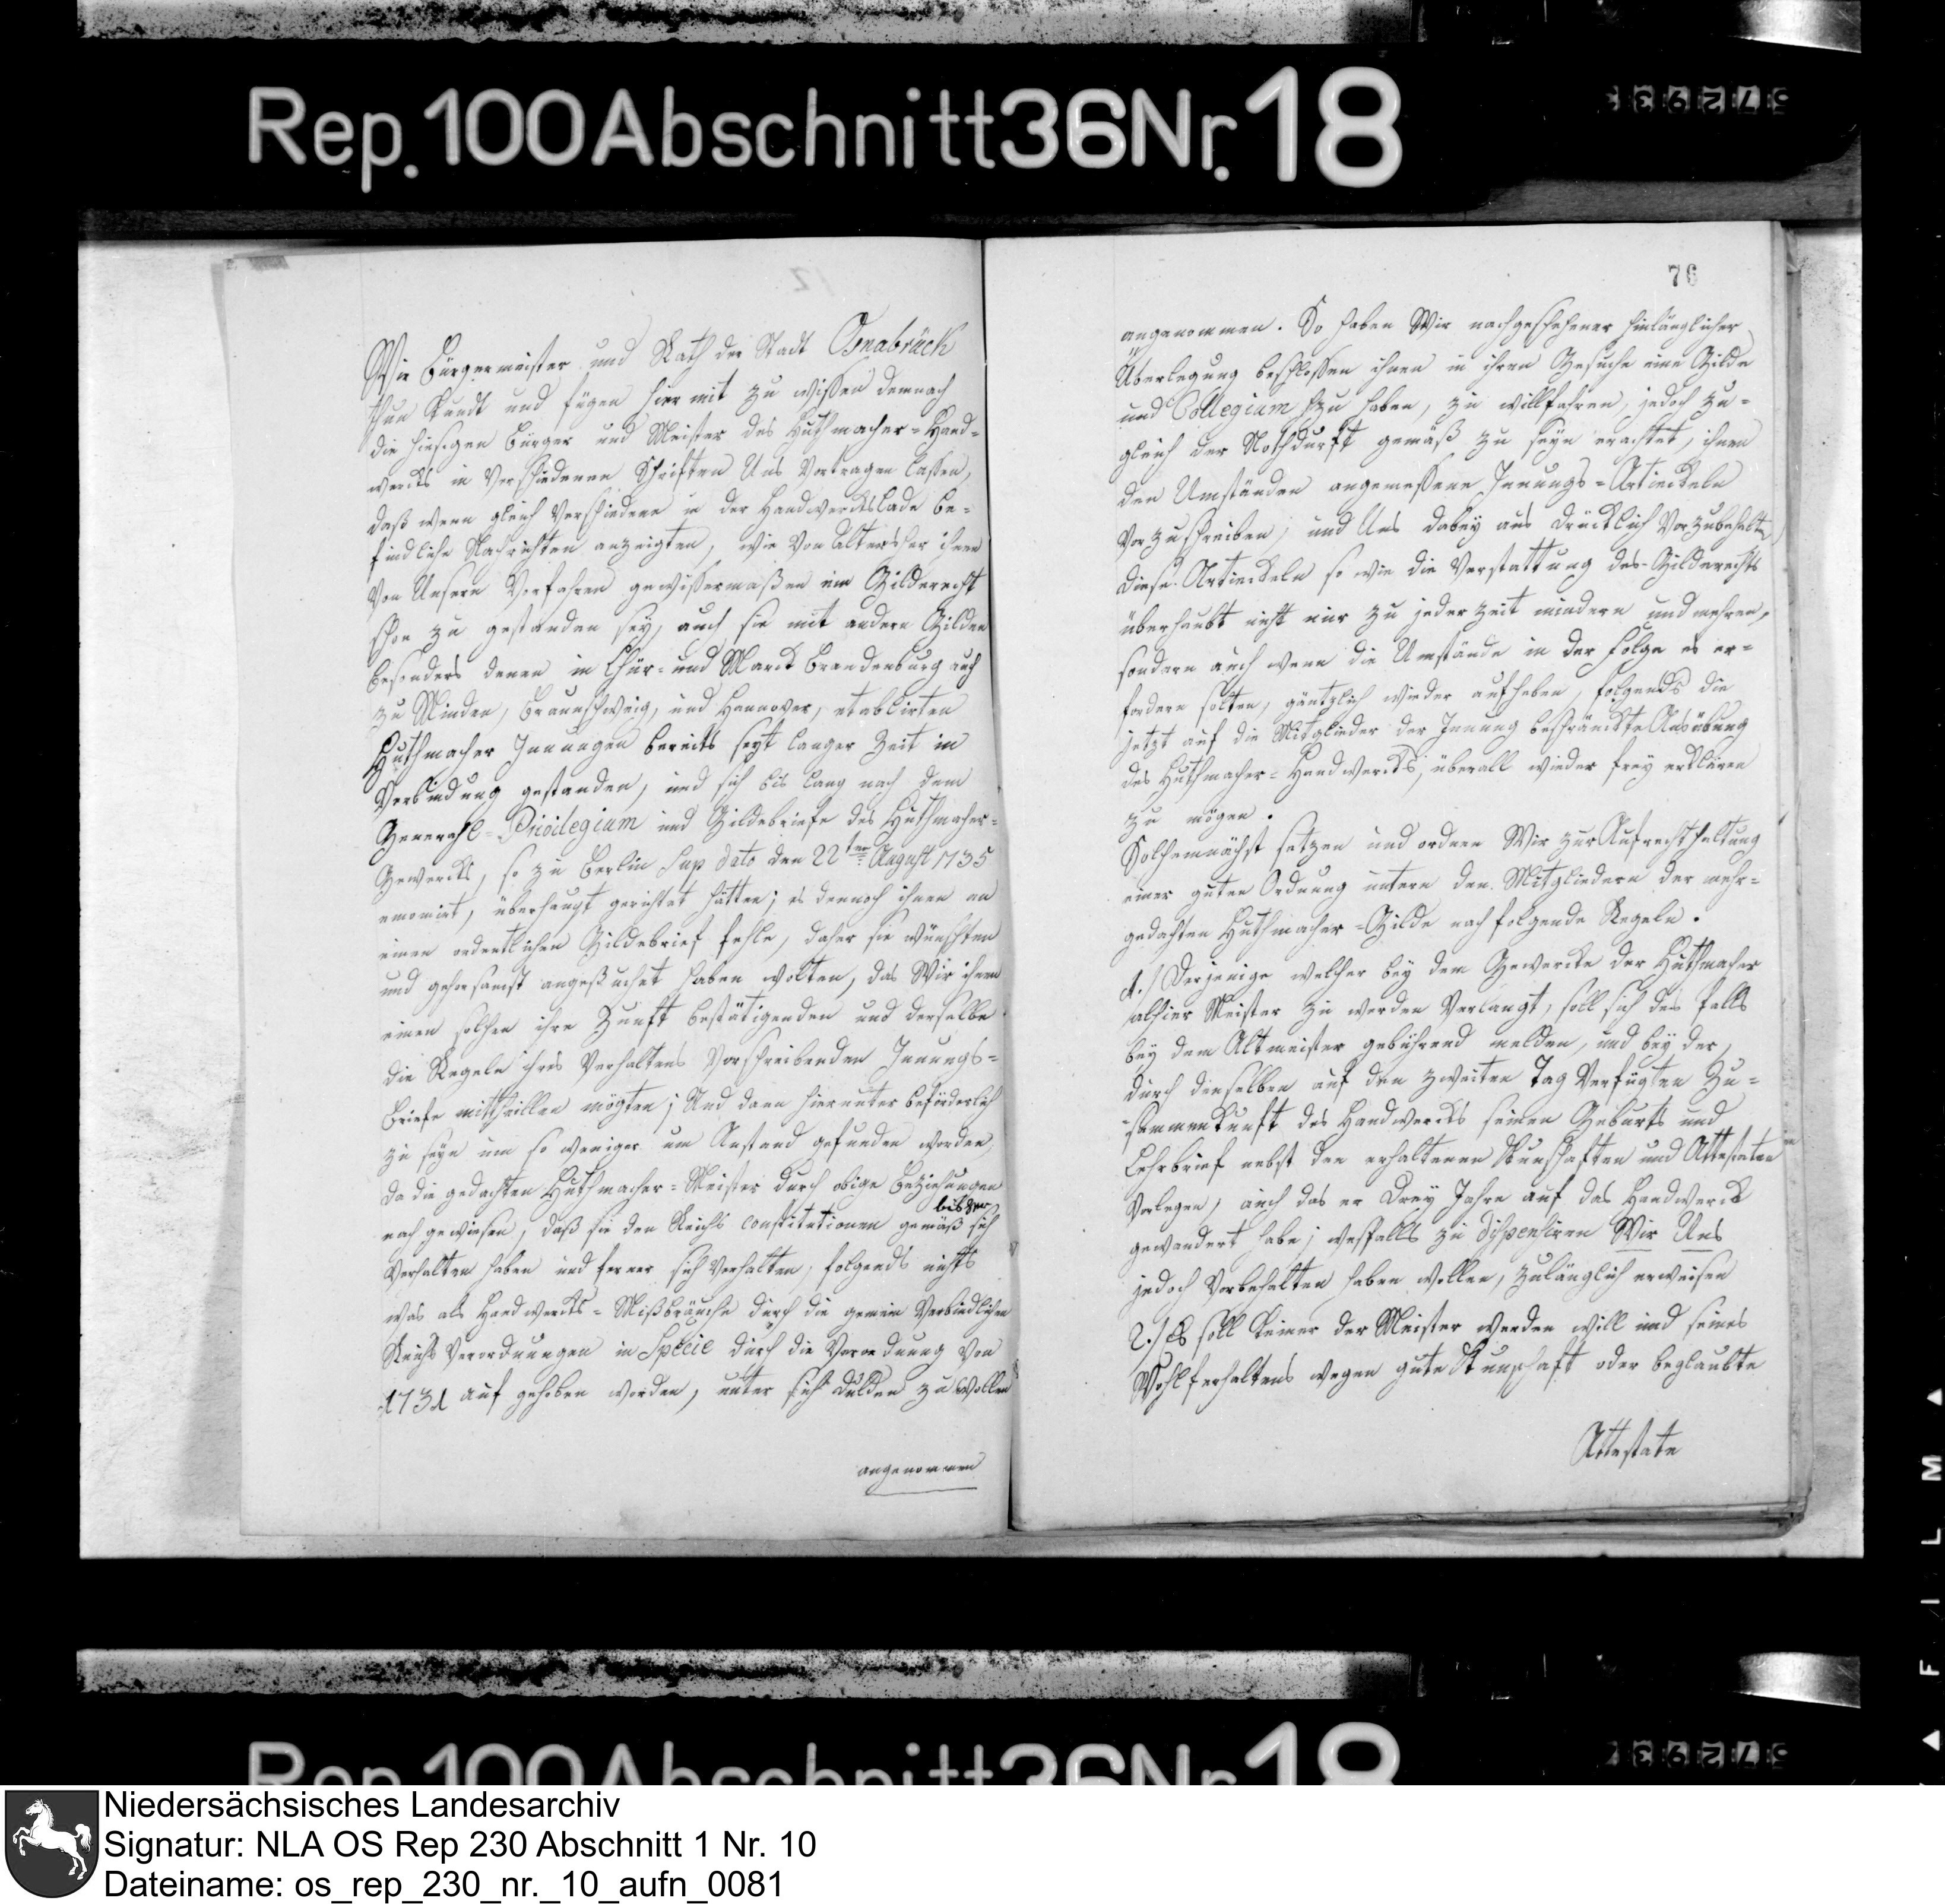 Rep. 100 Abschnitt 36 Nr. 18
76
Wir Bürgermeister und Rath der Stadt Osnabrück
thun Kundt und fügen hiermit zu wißen demnach
die hiesigen Bürger und Meister des Huthmacher-Hand-
wercks in Verschiedenen Schriften Uns Vortragen laßen,
daß wenn gleich Verschiedene in der Handwerckslade be-
findliche Nachrichten anzeigten, wie Von Altersher ihnen
Von Unsern Vorfahren gewißermaßen ein Gilderecht
schon zu gestanden sey, auch sie mit andern Gilden
besonders denen in Chur- und Marck Brandenburg auch
zu Minden, Braunschweig, und Hannover, etablirten
Huthmacher Innungen bereits seyt langer Zeit in
Verbindung gestanden, und sich bis lang nach dem
General-Privilegium und Gildebriefe des Huthmacher-
Gewercks, so zu Berlin sup dato den 22ten August 1735
emanirt, überhaupt gerichtet hätten; es dennoch ihnen an
einen ordentlichen Gildebrief fehle, daher sie wünschten
und gehorsamst angesuchet haben wolten, das Wir ihnen
einen solchen ihre Zunft bestätigenden und derselbe
die Regeln ihres Verhaltens Vorschreibenden Innungs-
briefe mittheillen mögten; Und dann hierunter beförderlich
zu seyn um so weniger um Anstand gefunden worden,
da die gedachten Huthmacher-Meister durch obige Beziehungen
nach gewiesen, daß sie den Reichs constitutionen gemäß sich
bisher
Verhalten haben und ferner sich Verhalten, folgends nichts
was als Handwercks-Mißbräuche durch die gemein Verbindlichen
Reichs Verordnungen in Specie durch die Verordnung Von
1731 auf gehoben worden, unter sich dulden zu wollen
angenommen
angenommen. So haben Wir nachgeschehener hinlänglicher
Überlegung beschloßen ihnen in ihren Gesuche eine Gilde
und Collegium zu haben, zu willfahren, jedoch zu-
gleich der Nothdurft gemäß zu seyn erachtet, ihnen
den Umständen angemeßene Innungs-Artickeln
Vorzuschreiben, und Uns dabey aus drücklich Vorzubehalten
diese Artickeln so wie die Verstattung des Gilderechts
überhaubt nicht nur zu jeder zeit mindern und mehren,
sondern auch wenn die Umstände in der Folge es er-
fordern solten, gäntzlich wieder aufheben, folgends die
jetzt auf die Mitglieder der Innung beschränckte Ausübung
des Huthmacher-Handwercks, überall wieder frey erklären
zu mögen.
Solchemnächst setzen und ordnen Wir zur Aufrechthaltung
einer guten Ordnung untern den Mitgliedern der mehr-
gedachten Huthmacher-Gilde nach folgende Regeln.
1./ Derjenige welcher bey dem Gewercke der Huthmacher
alhier Meister zu werden Verlangt, soll sich des falls
bey dem Altmeister gebührend melden, und bey der,
durch denselben auf den zweiten Tag Verfügten Zu-
sammenkunft des Handwercks seinen Geburts und
Lehrbrief nebst den erhaltenen Kundschaften und Attestaten
Vorlegen, auch das er Drey Jahre auf das Handwerck
gewandert habe; wesfalls zu dispensiren Wir Uns
jedoch Vorbehalten haben wollen, zulänglich erweisen
2./ Es soll keiner der Meister werden will und seines
Wohlverhaltens wegen gute Kundschaft oder beglaubte
Attestate
FILM
Rep. 100 Abschnitt 36 Nr. 18
Niedersächsisches Landesarchiv
Signatur: NLA OS Rep 230 Abschnitt 1 Nr. 10
Dateiname: os_rep_230_nr._10_aufn_0081